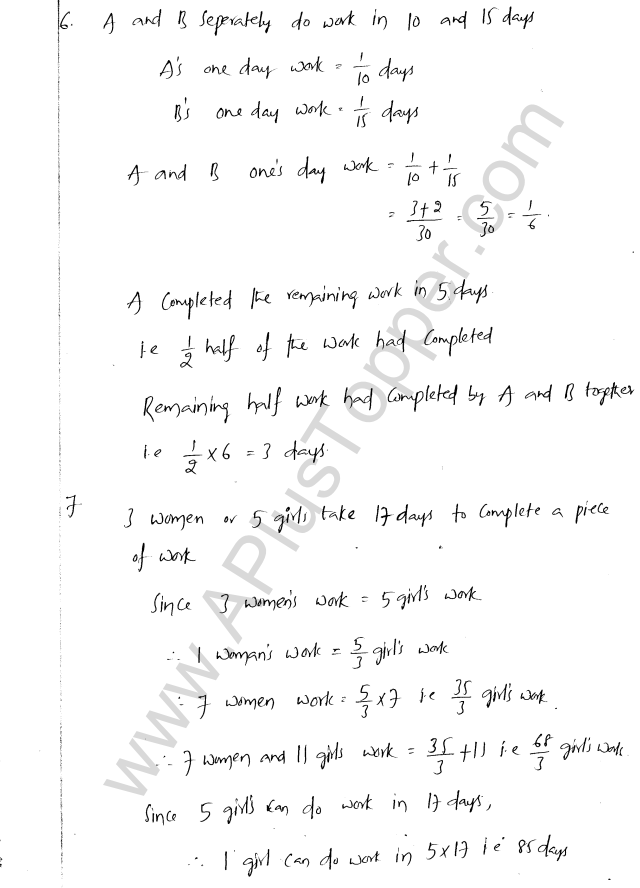 6. A and B Seperately do work in 10 and 15 days
A's one day work = 1/10 days
B's one day work = 1/15 days
A and B one's day work = 1/10 + 1/15
= 3+2/30 = 5/30 = 1/6.
A Completed the remaining work in 5 days.
i.e 1/2 half of the work had Completed
Remaining half work had Completed by A and B together
i.e 1/2 x 6 = 3 days.
7 3 women or 5 girls take 17 days to Complete a piece
of work
Since 3 women's work = 5 girl's work
∴ 1 woman's work = 5/3 girl's work
∴ 7 women work = 5/3 x 7 i.e 35/3 girl's work.
∴ 7 women and 11 girls work = 35/3 + 11 i.e 68/3 girl's work.
Since 5 girl's can do work in 17 days,
∴ 1 girl can do work in 5x17 i.e 85 days
www.APlusTopper.com